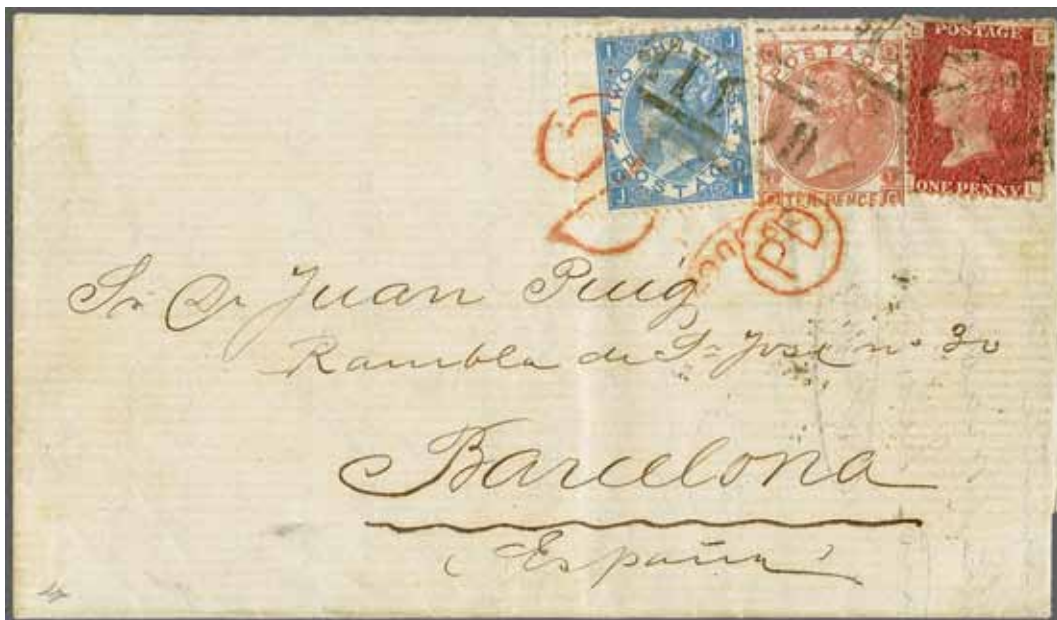 TWO SHILLINGS
POSTAGE
POSTAGE
TEN PENCE
POSTAGE
ONE PENNY
L
2
PD
Sr Dn Juan Puig
Rambla de Sn José no 30
Barcelona
(España)